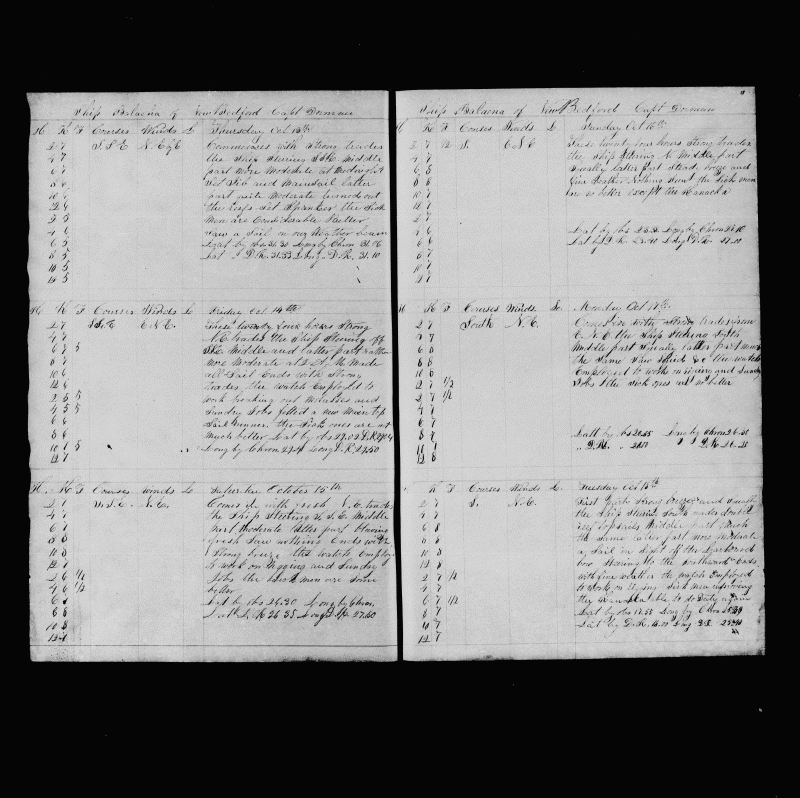 Ship Balaena of New Bedford Capt Dorman
H K F Courses Winds L Thursday Oct 13th
2 7 S.S.E N.E by E Commences with strong trades
4 7 the Ship steering S.S.E. Middle
6 7 part more Moderate at
8 6 Set Jib and Mainsail latter
10 6 part quite Moderate turned out
12 6 the reefs Set Spanker the Sick
2 5 Men are Considerable better
4 6 saw a Sail on our Weather beam
6 5 Lat by obs 31.30 Long by Chron 31.
8 5 Lat D.R. 31.53 Long D.R. 31.10
10 5
12 5
H K F Courses Winds L Friday Oct 14th
2 7 S.S.E E.N.E. These twenty four hours strong
4 7 N.E. trades the Ship Steering off
6 7 5 S.S.E. Middle and latter part rather
8 7 more Moderate at Made
10 6 all Sail Ends with strong
12 6 trades, the watch Employed to
2 6 5 work breaking out Molasses and
4 5 5 Sundry Jobs fitted a new Main top
6 6 Sail the Sick ones are not
8 6 Much better Lat by obs 29.02 D.R
10 7 5 Long by Chron Long D.R. 27.50
12 7
H K F Courses Winds L Saturday October 15th
2 7 S.S.E. N.E. Comes in with fresh N.E. trades
4 7 the Ship Steering S.S.E. Middle
6 7 Part Moderate latter part blowing
8 8 fresh Saw nothing Ends with
10 8 Strong breeze the watch Employed
12 7 to work on Rigging and Sundry
2 6 1/2 Jobs the Sick men are some
4 6 1/2 better
6 6 Lat by obs 26.20 Long by Chron
8 8 Lat D.R. 26.35 Long D.R. 27.50
10 8
12 7
Ship Balaena of New Bedford Capt Dorman
H K F Courses Winds L Sunday Oct 16th
2 7 1/2 S. E.N.E These twenty four hours Strong trades
4 7 the Ship Steering S. Middle part
6 8 Squally latter part Stead breeze and
8 8 fine Weather Nothing the Sick men
10 7 no better except the Kanacka
12 7
2 7
4 6 Lat by obs 23.36 Long by Chron 26.10
6 6 Lat by D.R. 23.40 Long D.R. 27.10
8 7
10 7
12 7
H K F Courses Winds L Monday Oct 17th
2 7 South N.E. Comes in with Strong trades from
4 7 E.N.E. the Ship Steering South
6 8 Middle part Squally latter part much
8 8 the Same the watch
10 8 Employed to work on rigging and Sundry
12 7 1/2 Jobs the sick ones no better
2 7 1/2
4 7
6 7
8 7 Latt by obs 20.55 Long by Chron 26.20
10 8 " D.R. Long D.R. 26.25
12 8
H K F Courses Winds L Tuesday Oct 18th
2 7 S. N.E. First part strong breezes and Squalls
4 7 the Ship Steering South under double
6 8 reef topsails Middle part Much
8 8 the Same latter part more Moderate
10 8 a Sail in Sight off the Larboard
12 7 bow Steering to the Southward Ends
2 7 1/2 with fine weather the watch Employed
4 7 to work on rigging Sick men improving
6 7 1/2 the able to do Duty again
8 7 Lat by obs 17.55 Long by Chron 25.39
10 7 Lat by D.R. 18.00 Long D.R. 25.40
12 7